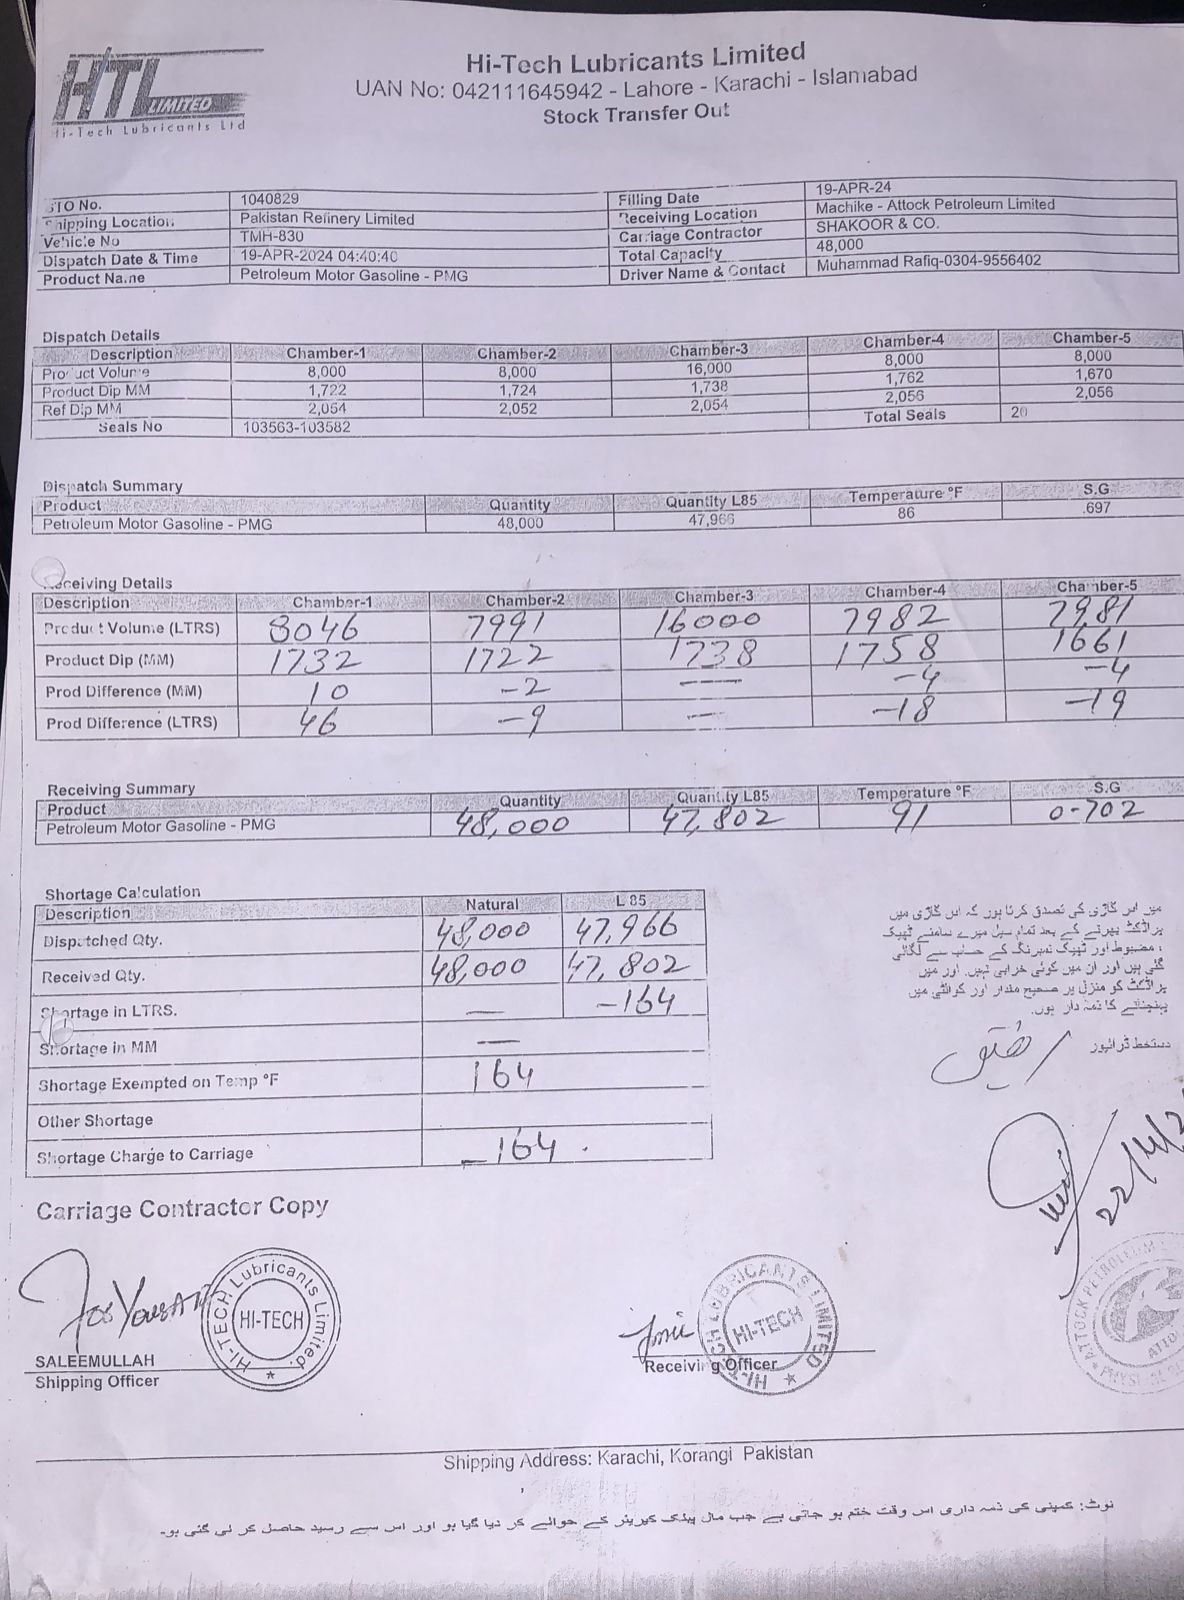 HTL LIMITED
Hi-Tech Lubricants Ltd
Hi-Tech Lubricants Limited
UAN No: 042111645942 - Lahore - Karachi - Islamabad
Stock Transfer Out
STO No. 1040829 Filling Date 19-APR-24
Shipping Location Pakistan Refinery Limited Receiving Location Machike - Attock Petroleum Limited
Vehicle No TMH-830 Carriage Contractor SHAKOOR & CO.
Dispatch Date & Time 19-APR-2024 04:40:40 Total Capacity 48,000
Product Name Petroleum Motor Gasoline - PMG Driver Name & Contact Muhammad Rafiq-0304-9556402
Dispatch Details
Description Chamber-1 Chamber-2 Chamber-3 Chamber-4 Chamber-5
Product Volume 8,000 8,000 16,000 8,000 8,000
Product Dip MM 1,722 1,724 1,738 1,762 1,670
Ref Dip MM 2,054 2,052 2,054 2,056 2,056
Seals No 103563-103582 Total Seals 20
Dispatch Summary
Product Quantity Quantity L85 Temperature °F S.G
Petroleum Motor Gasoline - PMG 48,000 47,966 86 .697
Receiving Details
Description Chamber-1 Chamber-2 Chamber-3 Chamber-4 Chamber-5
Product Volume (LTRS) 8046 7991 16000 7982 7981
Product Dip (MM) 1732 1722 1738 1758 1661
Prod Difference (MM) 10 -2 — -4 -4
Prod Difference (LTRS) 46 -9 — -18 -19
Receiving Summary
Product Quantity Quantity L85 Temperature °F S.G
Petroleum Motor Gasoline - PMG 48,000 47,802 91 0-702
Shortage Calculation
Description Natural L 85
Dispatched Qty. 48,000 47,966
Received Qty. 48,000 47,802
Shortage in LTRS. — -164
Shortage in MM —
Shortage Exempted on Temp °F 164
Other Shortage
Shortage Charge to Carriage -164.
میں اس گاڑی کی تصدق کرتا ہوں کہ اس گاڑی میں
پراڈکٹ بھرنے کے بعد تمام سیل میرے سامنے ٹھیک
، مضبوط اور ٹھیک نمبرنگ کے حساب سے لگائی
گئی ہیں اور ان میں کوئی خرابی نہیں۔ اور میں
پراڈکٹ کو منزل پر صحیح مقدار اور کوالٹی میں
پہنچانے کا ذمہ دار ہوں۔
دستخط ڈرائیور رفیق
22/4/2
Carriage Contractor Copy
For Yousaf
HI-TECH Lubricants Limited.
HI-TECH
SALEEMULLAH
Shipping Officer
HI-TECH LUBRICANTS LIMITED
HI-TECH
Receiving Officer
ATTOCK PETROLEUM
Shipping Address: Karachi, Korangi Pakistan
نوٹ: کمپنی کی ذمہ داری اس وقت ختم ہو جاتی ہے جب مال پبلک کیریئر کے حوالے کر دیا گیا ہو اور اس سے رسید حاصل کر لی گئی ہو۔